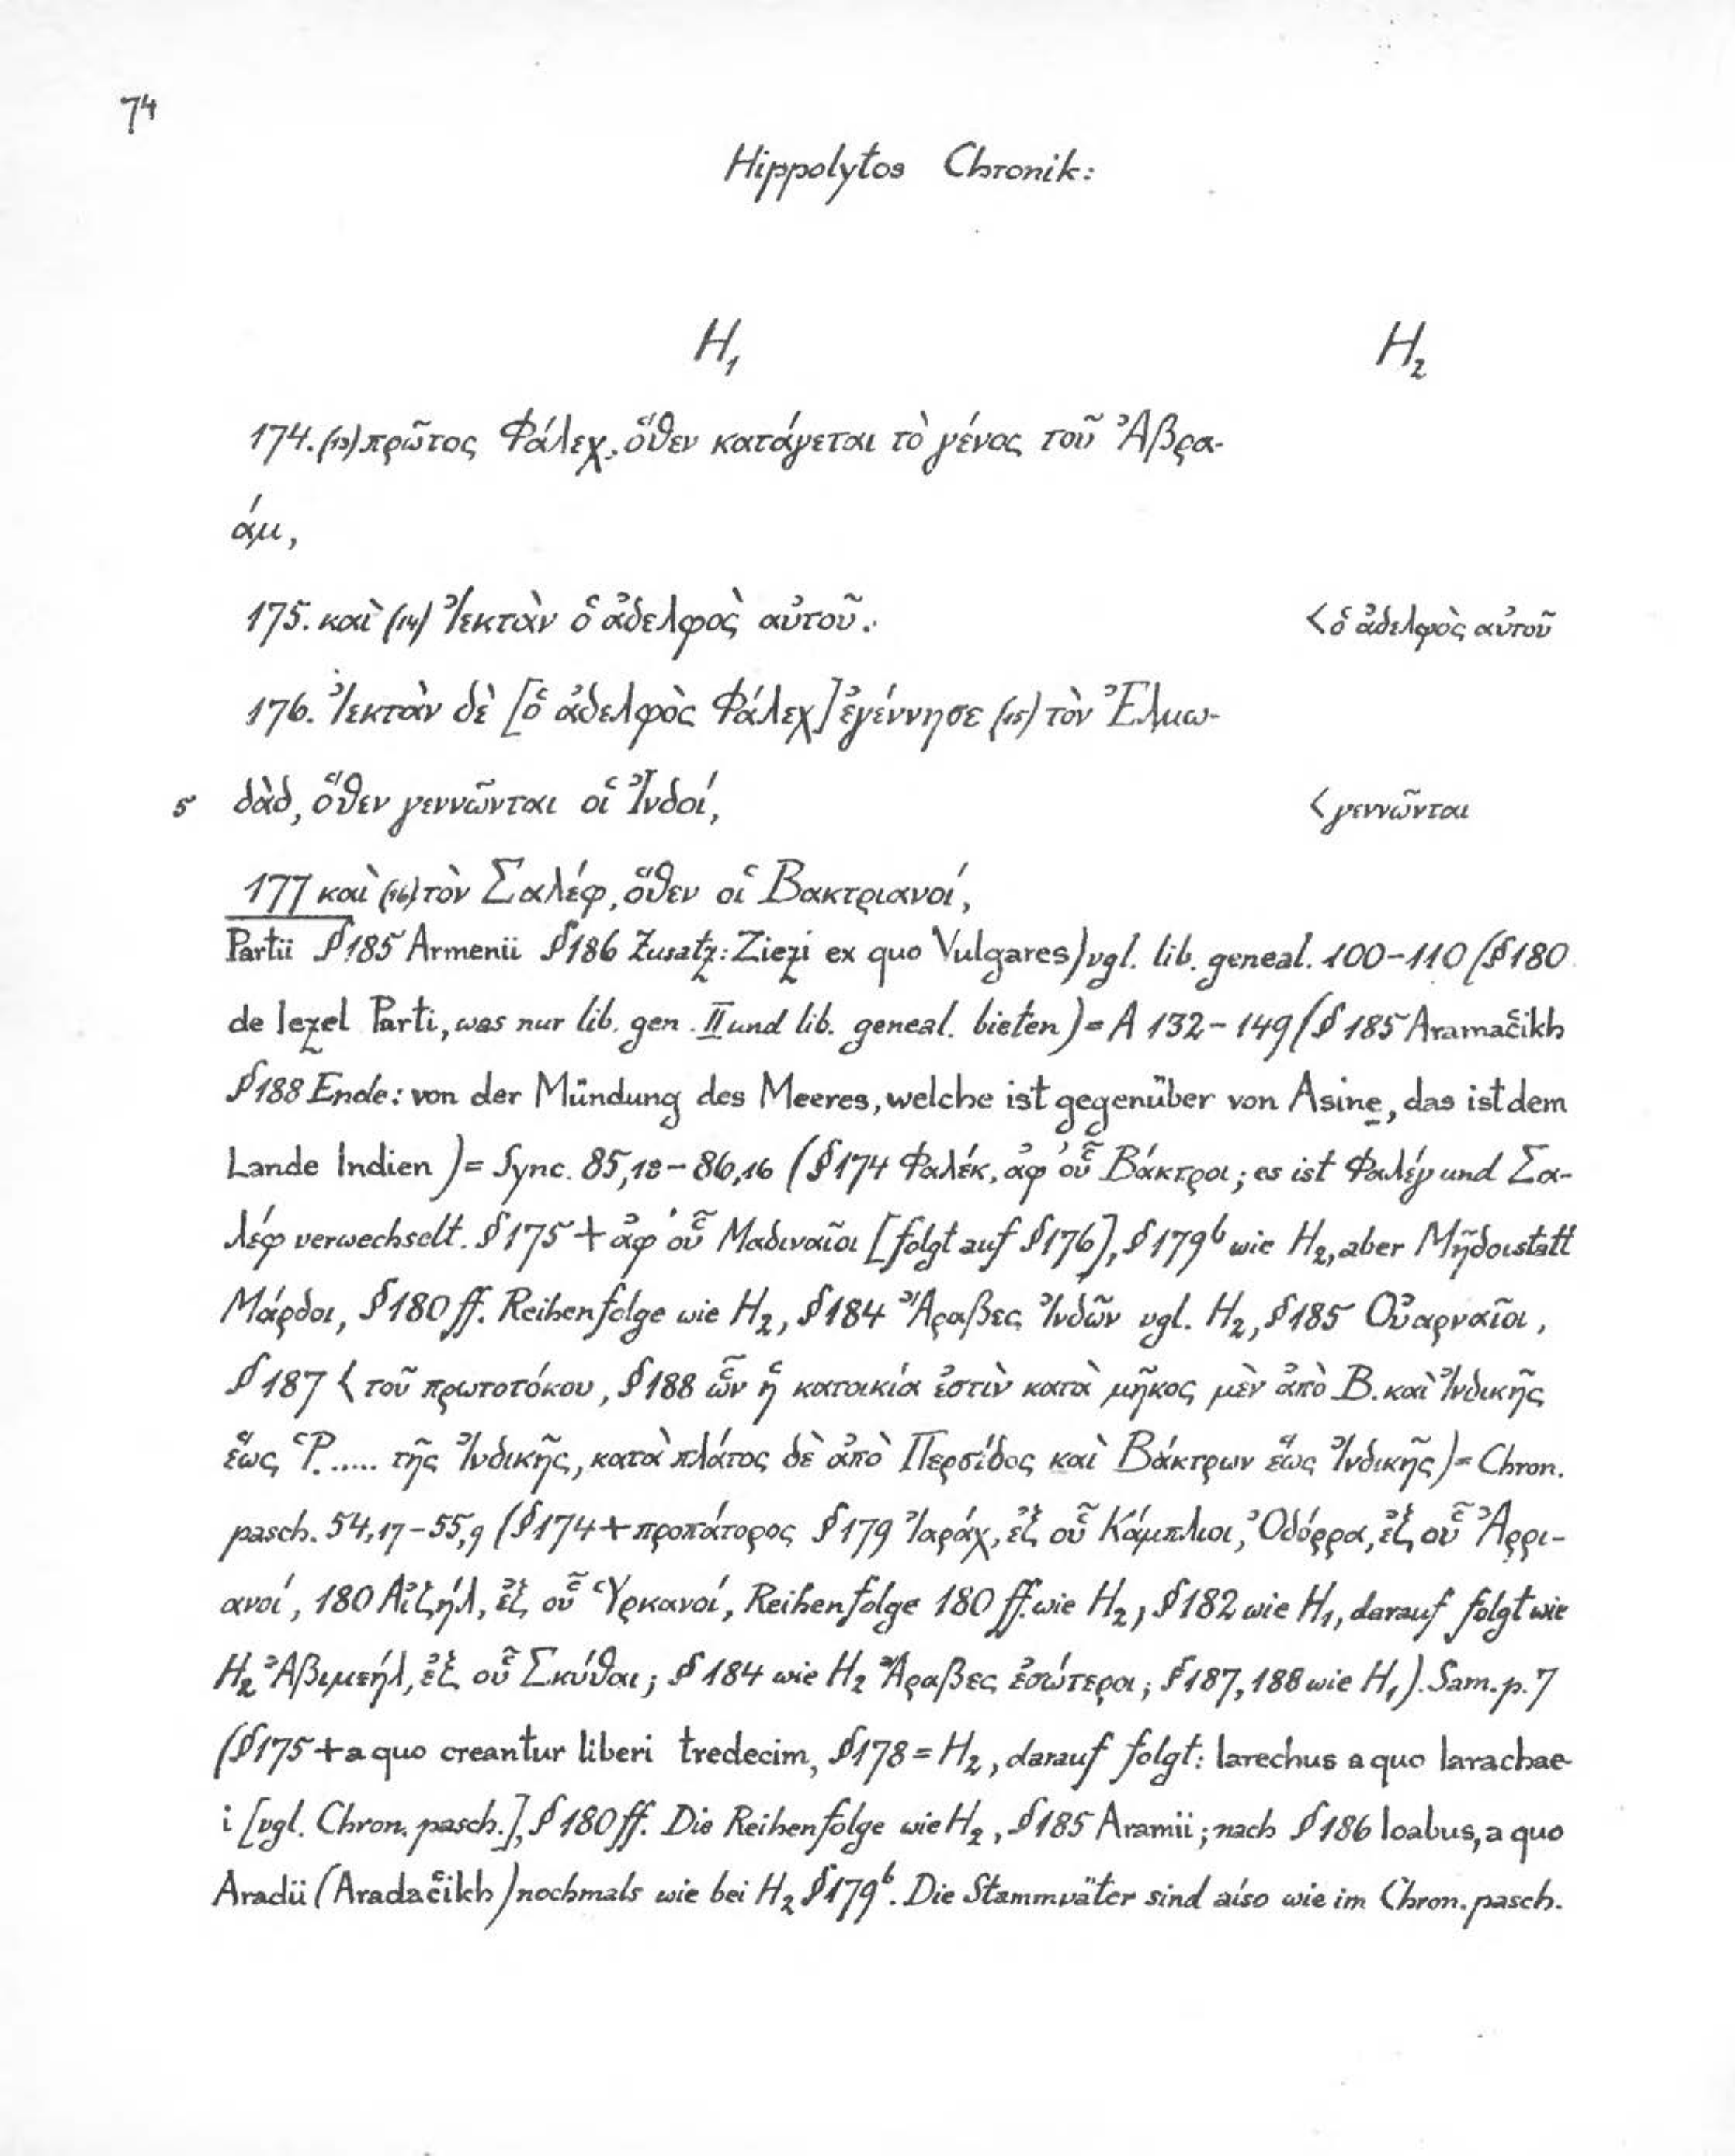 74
Hippolytos Chronik:
H₁ H₂
174. (13) πρῶτος Φάλεχ, ὅθεν κατάγεται τὸ γένος τοῦ Ἀβρα-
άμ,
175. καὶ (14) Ἰεκτὰν ὁ ἀδελφὸς αὐτοῦ. < ὁ ἀδελφὸς αὐτοῦ
176. Ἰεκτὰν δὲ [ὁ ἀδελφὸς Φάλεχ] ἐγέννησε (15) τὸν Ἐλμω-
5 δὰδ, ὅθεν γεννῶνται οἱ Ἰνδοί, < γεννῶνται
177 καὶ (16) τὸν Σαλέφ, ὅθεν οἱ Βακτριανοί,
Partii § 185 Armenii § 186 Zusatz: Ziezi ex quo Vulgares) vgl. lib. geneal. 100-110 (§ 180
de Iezel Parti, was nur lib. gen. II und lib. geneal. bieten) = A 132-149 (§ 185 Aramačikh
§ 188 Ende: von der Mündung des Meeres, welche ist gegenüber von Asine, das ist dem
Lande Indien) = Sync. 85,18-86,16 (§ 174 Φαλέκ, ἀφ' οὗ Βάκτροι; es ist Φαλέγ und Σα-
λέφ verwechselt. § 175 + ἀφ' οὗ Μαδιναῖοι [folgt auf § 176], § 179ᵇ wie H₂, aber Μῆδοι statt
Μάρδοι, § 180 ff. Reihenfolge wie H₂, § 184 Ἄραβες Ἰνδῶν vgl. H₂, § 185 Οὐαρναῖοι,
§ 187 < τοῦ πρωτοτόκου, § 188 ὧν ἡ κατοικία ἐστὶν κατὰ μῆκος μὲν ἀπὸ Β. καὶ Ἰνδικῆς
ἕως Ῥ. ..... τῆς Ἰνδικῆς, κατὰ πλάτος δὲ ἀπὸ Περσίδος καὶ Βάκτρων ἕως Ἰνδικῆς) = Chron.
pasch. 54,17-55,9 (§ 174 + προπάτορος § 179 Ἰαράχ, ἐξ οὗ Κάμπλιοι, Ὀδόρρα, ἐξ οὗ Ἀρρι-
ανοί, 180 Αἰζήλ, ἐξ οὗ Ὑρκανοί, Reihenfolge 180 ff. wie H₂; § 182 wie H₁, darauf folgt wie
H₂ Ἀβιμεήλ, ἐξ οὗ Σκύθαι; § 184 wie H₂ Ἄραβες ἐσώτεροι; § 187, 188 wie H₁). Sam. p. 7
(§ 175 + a quo creantur liberi tredecim, § 178 = H₂, darauf folgt: Iarechus a quo Iarachae-
i [vgl. Chron. pasch.], § 180 ff. Die Reihenfolge wie H₂, § 185 Aramii; nach § 186 Ioabus, a quo
Aradii (Aradačikh) nochmals wie bei H₂ § 179ᵇ. Die Stammväter sind also wie im Chron. pasch.